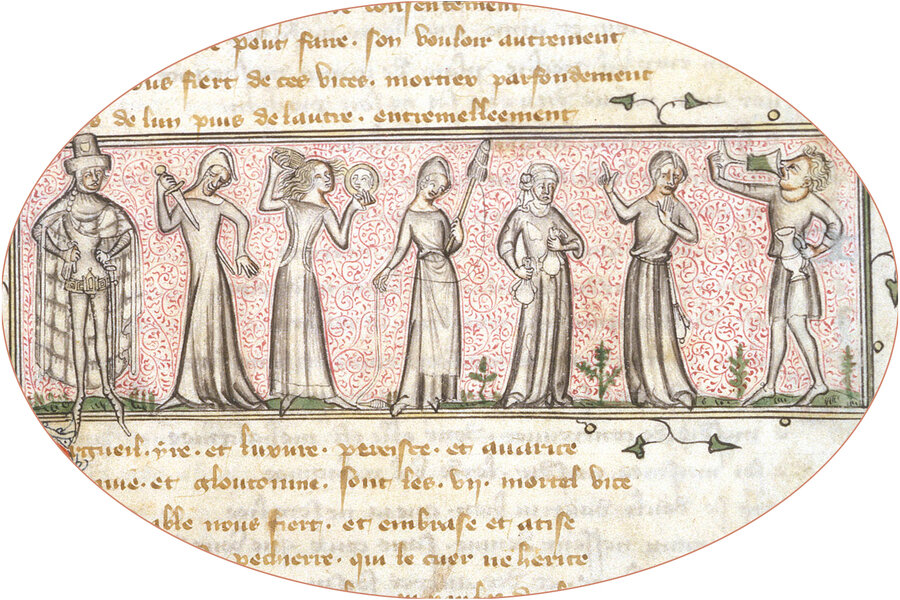 consentement
pout faire. son vouloir autrement
ous fiert de ces vices. mortiex parfondement
de lun plus de lautre. entremelleement
rgueil. yre. et luxure. peresce. et auarice
uie. et gloutonnie. sont les. vij. mortel vice
able nous fiert. et embrase et atise
pecherre. qui le cuer ne herite